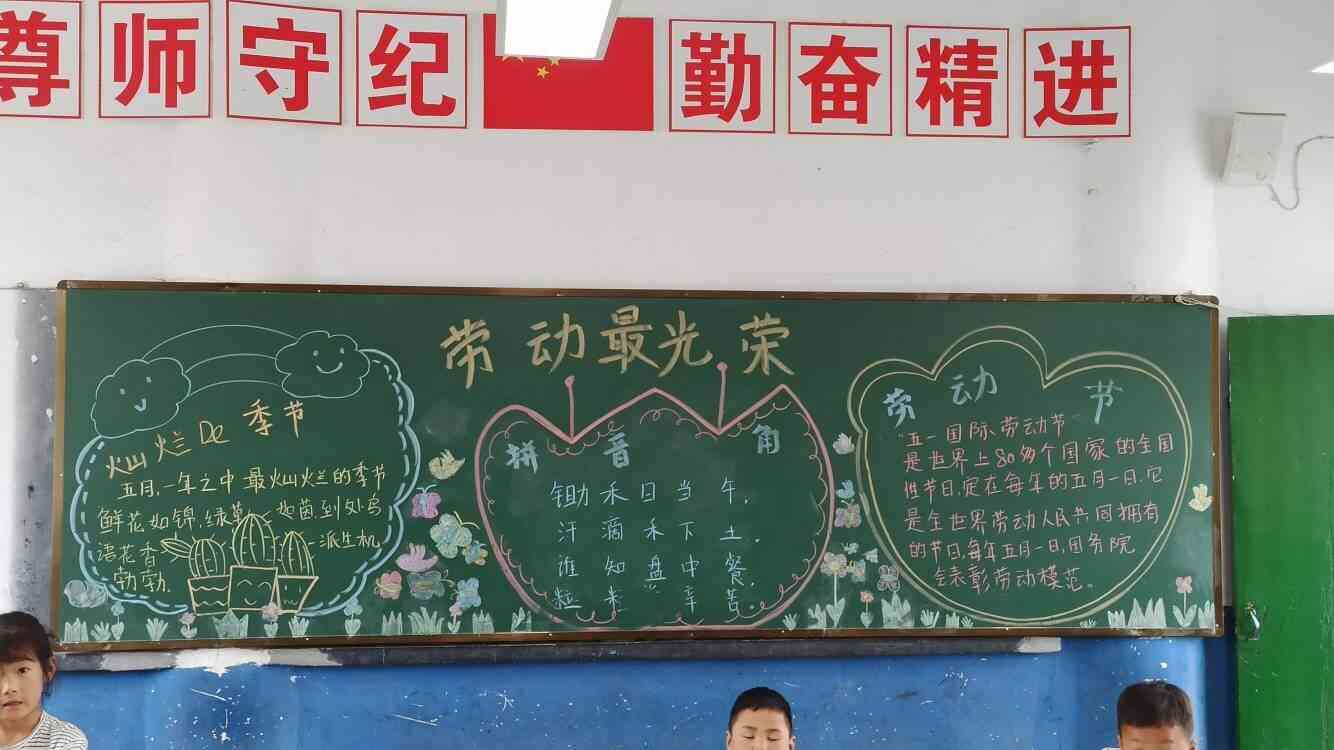 尊师守纪 勤奋精进
劳动最光荣
灿烂De季节
五月,一年之中最灿烂的季节
鲜花如锦,绿草如茵,到处鸟
语花香 一派生机
勃勃.
拼音角
锄禾日当午,
汗滴禾下土.
谁知盘中餐,
粒 辛苦。
劳动节
五一国际劳动节
是世界上80多个国家的全国
性节日,定在每年的五月一日.它
是全世界劳动人民共同拥有
的节日,每年五月一日,国务院
会表彰劳动模范。